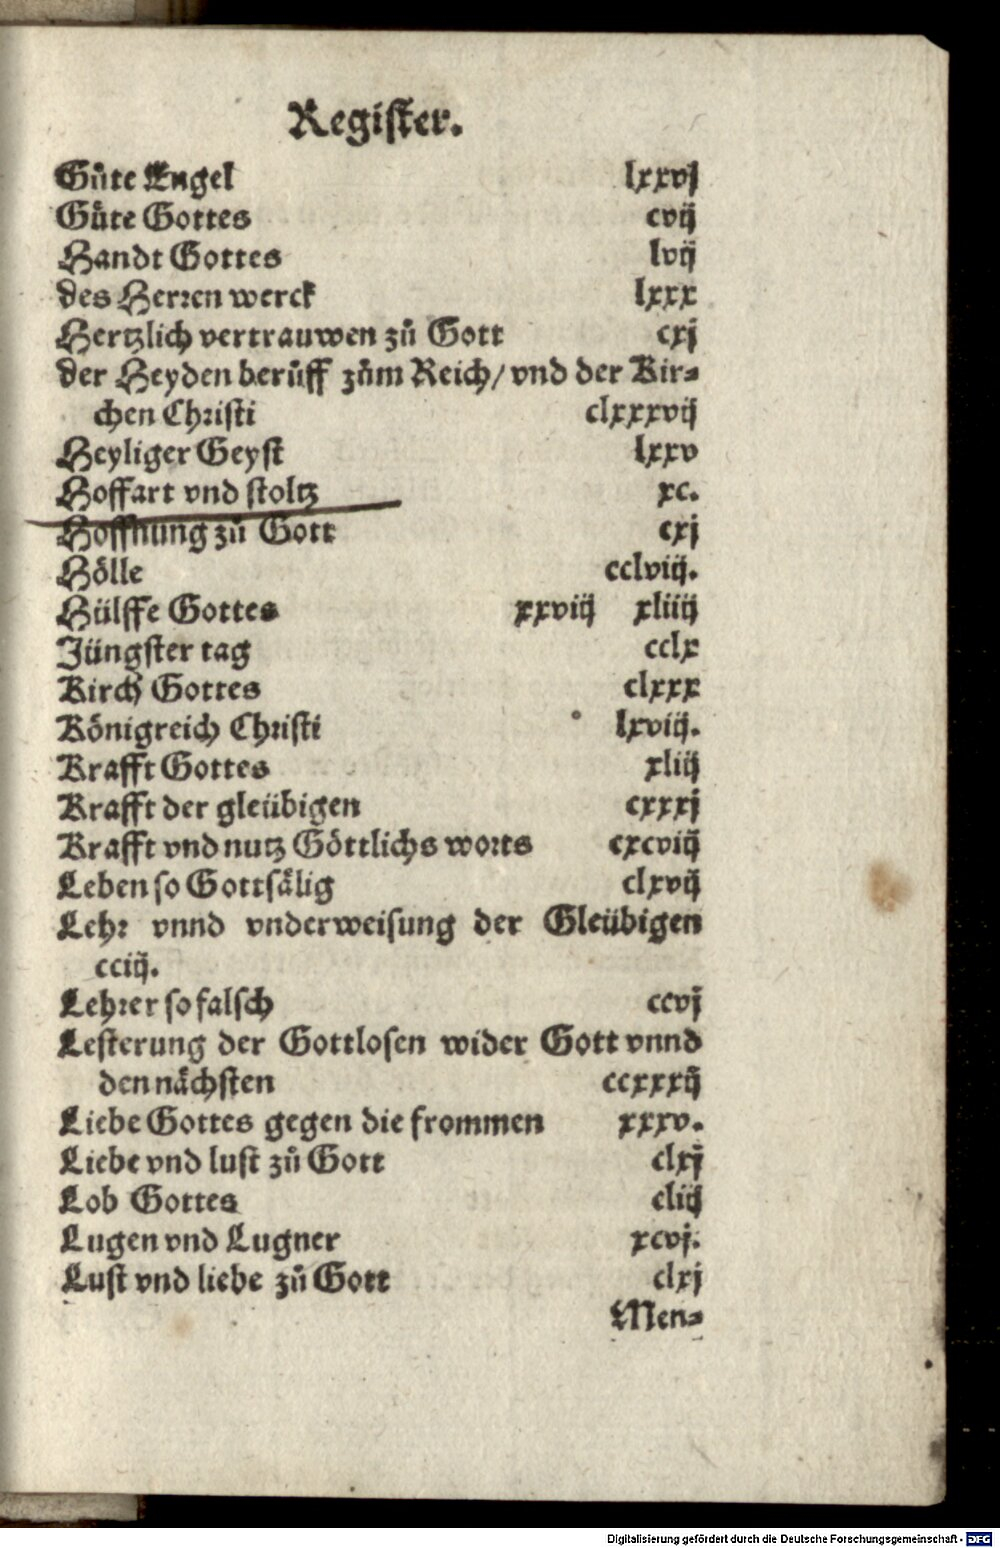 Register.
Gůte Engel lxxvj
Gůte Gottes cvij
Handt Gottes lvij
des Herren werck lxxx
Hertzlich vertrauwen zů Gott cxj
der Heyden berůff zům Reich/ vnd der Kir-
chen Christi clxxxvij
Heyliger Geyst lxxv
Hoffart vnd stoltz xc.
Hoffnung zů Gott cxj
Hölle cclviij.
Hülffe Gottes xxviij xliiij
Jüngster tag cclx
Kirch Gottes clxxx
Königreich Christi lxviij.
Krafft Gottes xliij
Krafft der gleübigen cxxxj
Krafft vnd nutz Göttlichs worts cxcviij
Leben so Gottsälig clxvij
Lehr vnnd vnderweisung der Gleübigen
cciij.
Lehrer so falsch ccvj
Lesterung der Gottlosen wider Gott vnnd
den nächsten ccxxxij
Liebe Gottes gegen die frommen xxxv.
Liebe vnd lust zů Gott clxj
Lob Gottes cliij
Lugen vnd Lugner xcvj.
Lust vnd liebe zů Gott clxj
Men-
Digitalisierung gefördert durch die Deutsche Forschungsgemeinschaft - DFG